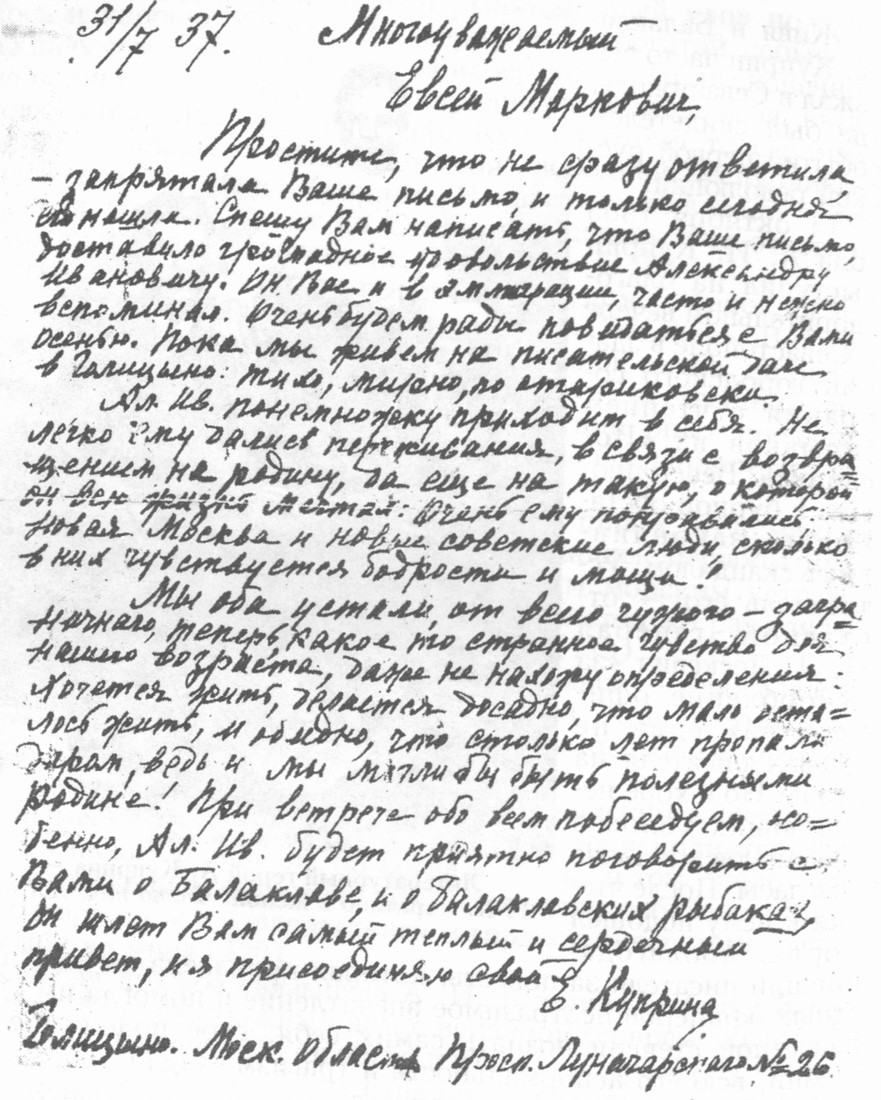 31/7 37.
Многоуважаемый
Евсей Маркович,
Простите, что не сразу ответила,
– запрятала Ваше письмо, и только сегодня
нашла. Спешу Вам написать, что Ваше письмо,
доставило громадное удовольствие Александру
Ивановичу. Он Вас и в эммиграции, часто и нежно
вспоминал. Очень будем рады повидаться с Вами
осенью. Пока мы живем на писательской даче
в Голицыно: тихо, мирно, по стариковски.
Ал. Ив. понемножку приходит в себя. Не
легко ему дались переживания, в связи с возвра=
щением на родину, да еще на такую, о которой
он всю жизнь мечтал. Очень ему понравились:
новая Москва и новые советские люди, сколько
в них чувствуется бодрости и мощи!
Мы оба устали, от всего чужого – загра=
ничнаго, теперь, какое то странное чувство для
нашего возраста, даже не нахожу определения:
хочется жить, делается досадно, что мало оста=
лось жить, и обидно, что столько лет пропало
даром, ведь и мы могли бы быть полезными
родине! При встрече обо всем побеседуем, осо=
бенно, Ал. Ив. будет приятно поговорить с
Вами о Балаклаве, и о балаклавских рыбаках,
он шлет Вам самый теплый и сердечный
привет, и я присоединяю свой
Е. Куприна
Голицыно. Моск. Область Просп. Луначарского № 26.